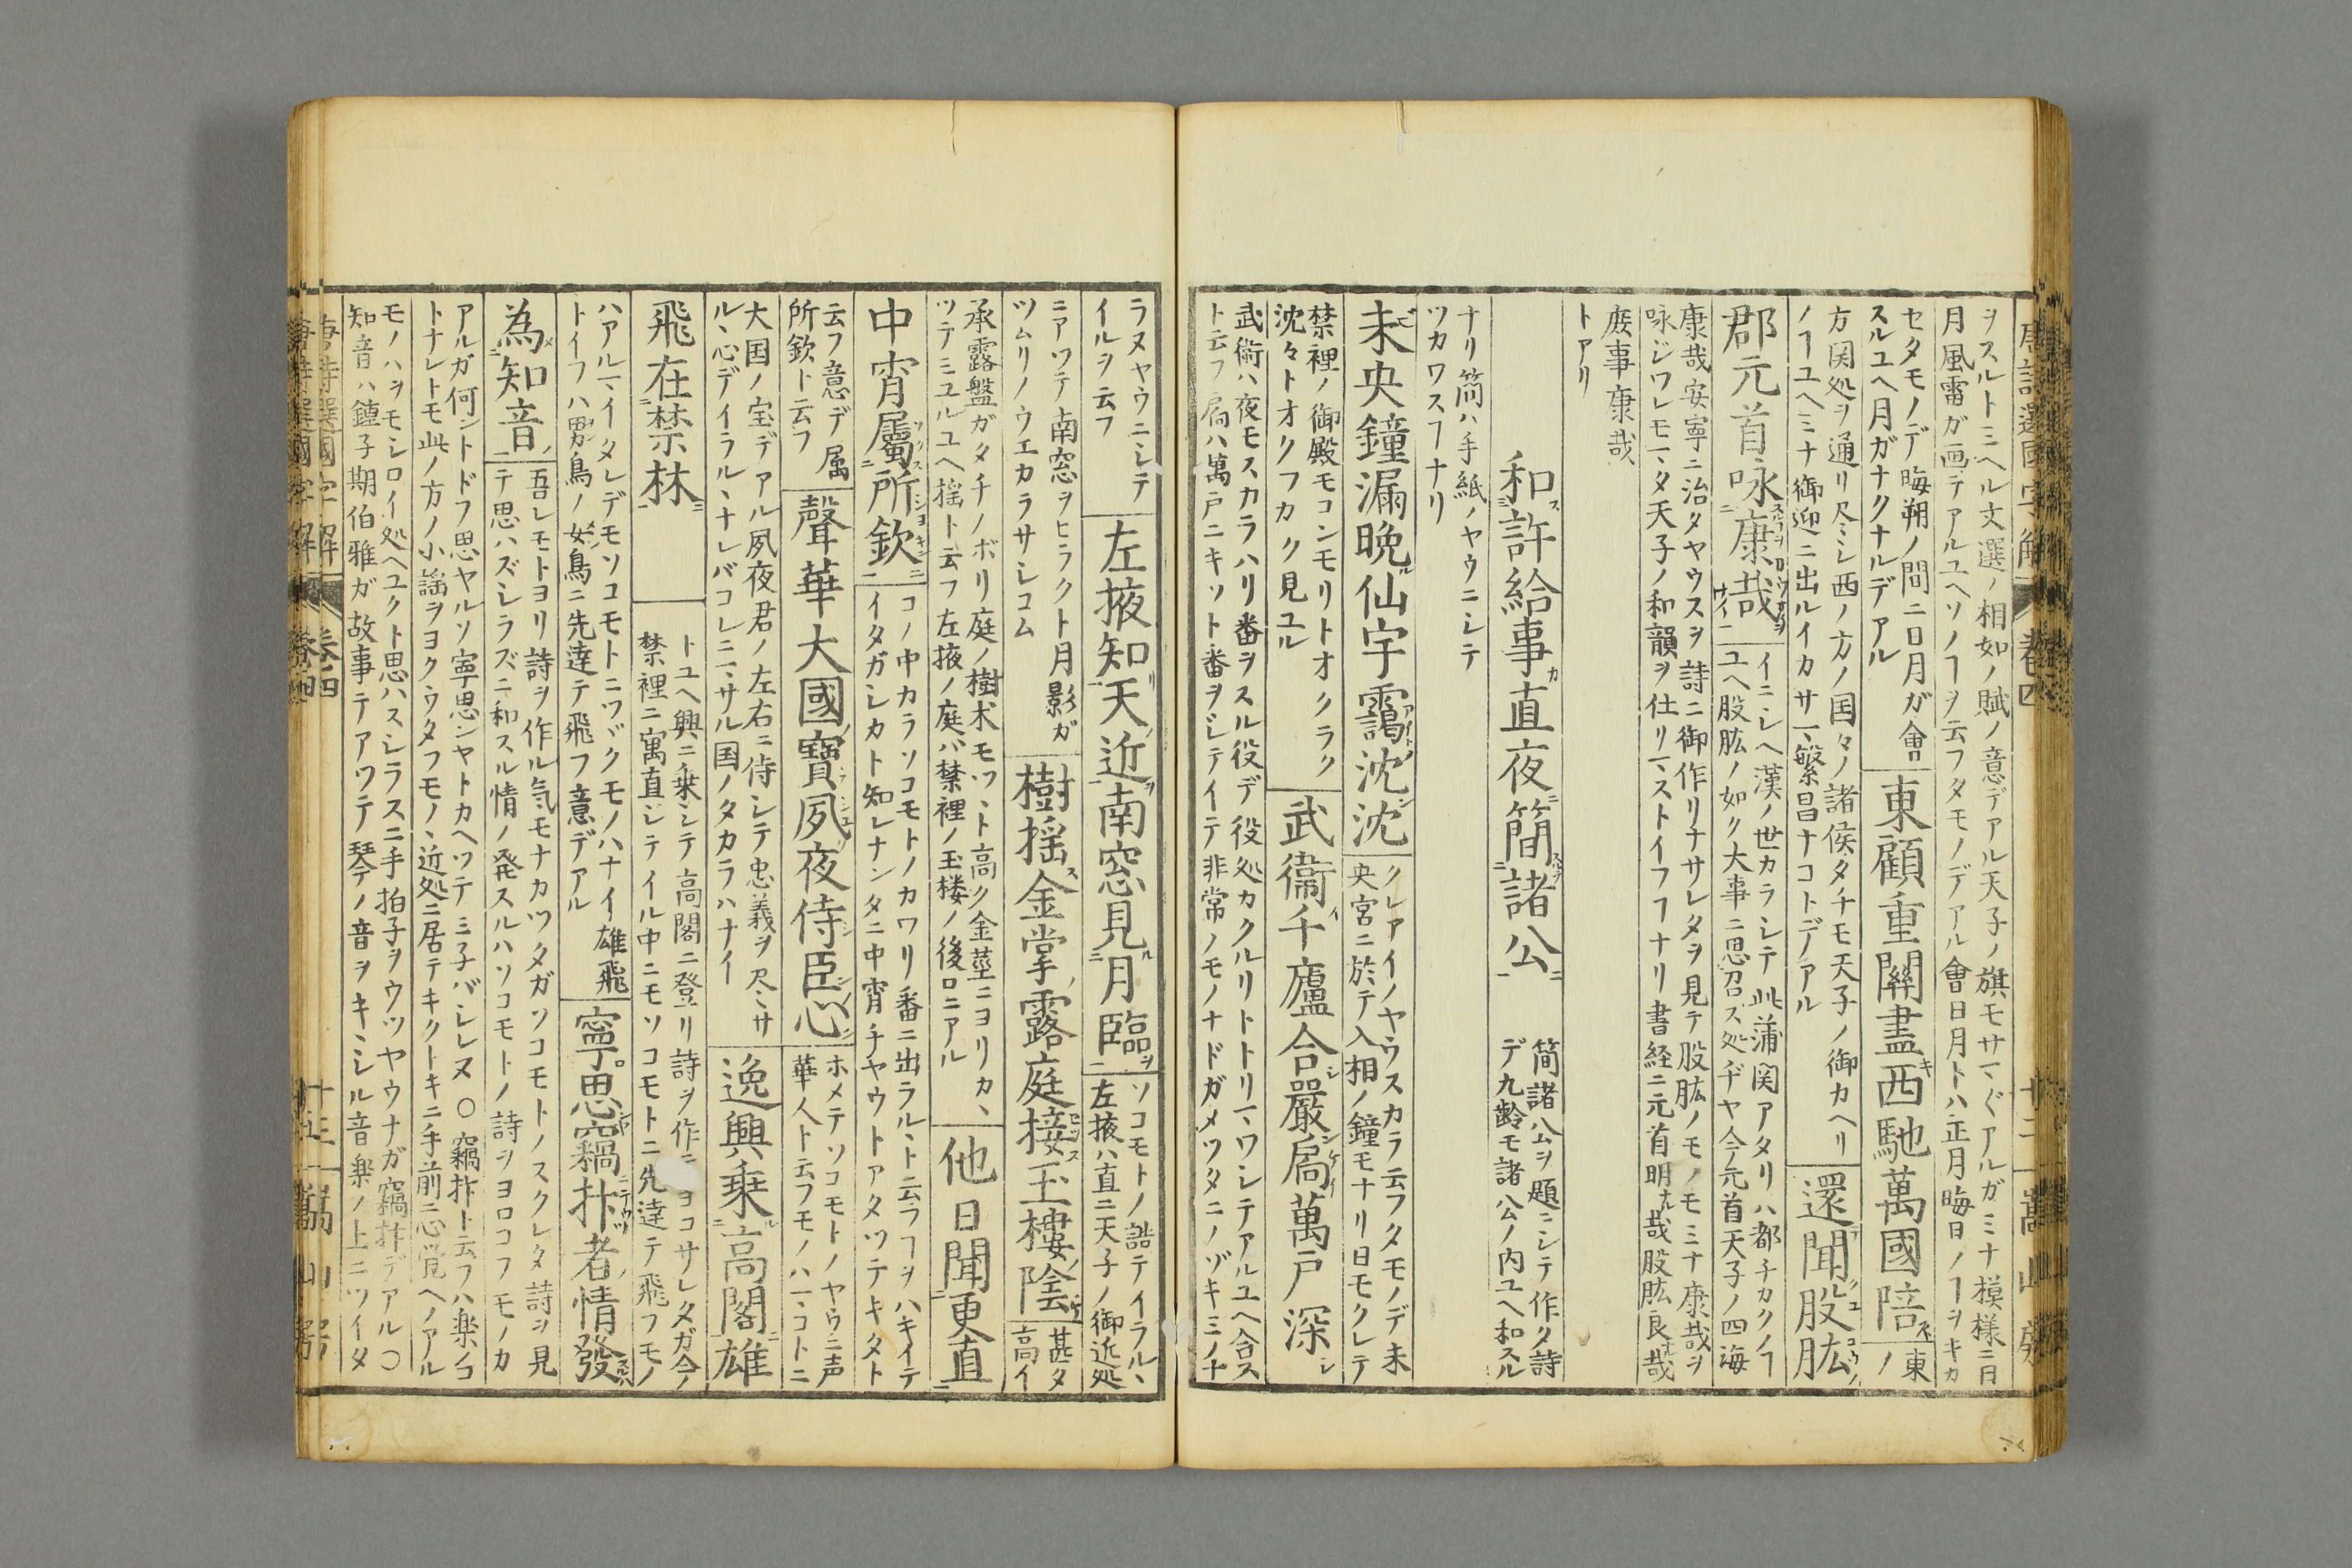 唐詩選國字解
卷四
嵩山房
ヲスルトミヘル文選ノ相如ノ賦ノ意デアル天子ノ旗モサマ〳〵アルガミナ模様ニ日
月風雷ガ画テアルユヘソノヿヲ云フタモノデアル會日月トハ正月晦日ノヿヲキカ
セタモノデ晦朔ノ間ニ日月ガ會
スルユヘ月ガナクナルデアル
東顧重關盡西馳萬國陪
東ノ
方関処ヲ通リ尽ミシ西ノ方ノ国々ノ諸侯タチモ天子ノ御カヘリ
ノヿユヘミナ御迎ニ出ルイカサマ繁昌ナコトデアル
還聞股肱
郡元首咏康哉
イニシヘ漢ノ世カラシテ此蒲関アタリハ都チカクノヿ
ユヘ股肱ノ如ク大事ニ思召ス処ヂヤ今元首天子ノ四海
康哉安寧ニ治タヤウスヲ詩ニ御作リナサレタヲ見テ股肱ノモノモミナ康哉ヲ
咏ジワレモマタ天子ノ和韻ヲ仕リマストイフヿナリ書経ニ元首明哉股肱良哉
庶事康哉
トアリ
和許給事直夜簡諸公
簡諸公ヲ題ニシテ作タ詩
デ九齢モ諸公ノ内ユヘ和スル
ナリ簡ハ手紙ノヤウニシテ
ツカワスヿナリ
未央鐘漏晩仙宇靄沈沈
クレアイノヤウスカラ云フタモノデ未
央宮ニ於テ入相ノ鐘モナリ日モクレテ
禁裡ノ御殿モコンモリトオクラク
沈々トオクフカク見ユル
武衞千廬合嚴扃萬戸深
武衛ハ夜モスカラハリ番ヲスル役デ役処カクルリトトリマワシテアルユヘ合ス
ト云フ扃ハ萬戸ニキット番ヲシテイテ非常ノモノナドガメッタニノゾキミノナ
ラヌヤウニシテ
イルヲ云フ
左掖知天近南窓見月臨
ソコモトノ詰テイラルヽ
左掖ハ直ニ天子ノ御近処
ニアツテ南窓ヲヒラクト月影ガ
ツムリノウエカラサシコム
樹揺金掌露庭接玉樓陰
甚タ
高イ
承露盤ガタチノボリ庭ノ樹木モツヽト高ク金莖ニヨリカヽ
ツテミユルユヘ揺ト云フ左掖ノ庭バ禁裡ノ玉楼ノ後ロニアル
他日聞更直
中宵屬所欽
コノ中カラソコモトノカワリ番ニ出ラルヽト云フヿヲハキイテ
イタガシカト知レナンタニ中宵チヤウトアタツテキタト
云フ意デ属
所欽ト云フ
聲華大國寶夙夜侍臣心
ホメテソコモトノヤウニ声
華人ト云フモノハマコトニ
大国ノ宝デアル夙夜君ノ左右ニ侍シテ忠義ヲ尽ミサ
ルヽ心デイラルヽナレバコレニマサル国ノタカラハナイ
逸興乗高閣雄
飛在禁林
トユヘ興ニ乗シテ高閣ニ登リ詩ヲ作ニヨコサレタガ今ノ
禁裡ニ寓直ジテイル中ニモソコモトニ先達テ飛フモノ
ハアルマイタレデモソコモトニツヾクモノハナイ雄飛
トイフハ男鳥ノ女鳥ニ先達テ飛フ意デアル
寧思竊抃者情發
為知音
吾レモトヨリ詩ヲ作ル気モナカツタガソコモトノスクレタ詩ヲ見
テ思ハズシラズニ和スル情ノ発スルハソコモトノ詩ヲヨロコフモノカ
アルガ何ントドフ思ヤルソ寧思ンヤトカヘツテミ子バシレヌ○竊抃ト云フハ楽ノコ
トナレトモ此ノ方ノ小謡ヲヨクウタフモノヽ近処ニ居テキクトキニ手前ニ心覚ヘノアル
モノハヲモシロイ処ヘユクト思ハスシラスニ手拍子ヲウツヤウナガ竊抃デアル○
知音ハ鍾子期伯雅ガ故事テアツテ琴ノ音ヲキヽシル音楽ノ上ニツイタ
唐詩選國字解
卷四
嵩山房